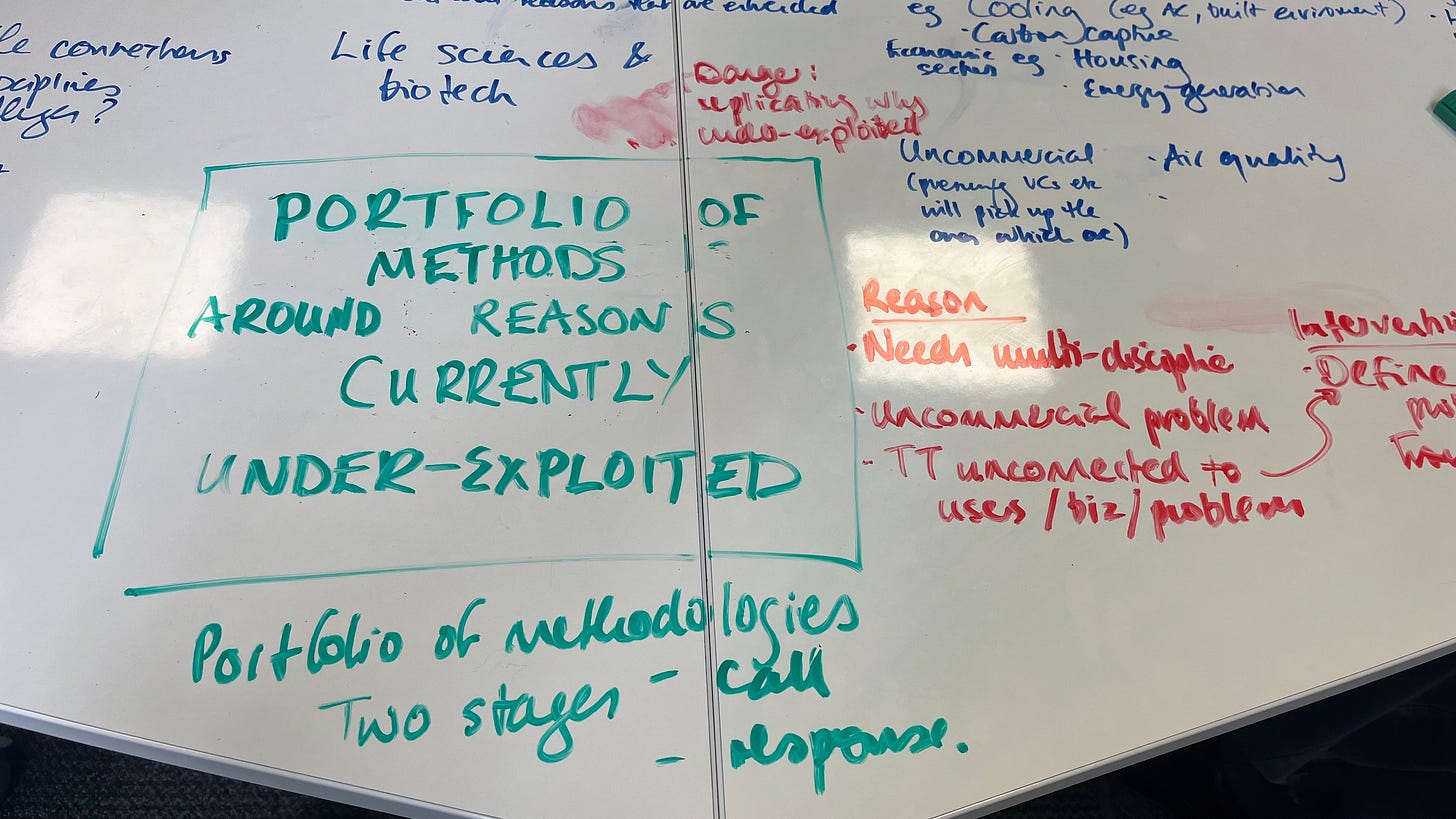 reasons that are embedded
le connections
Life sciences &
biotech
eg Cooling (eg AC, built enviroment)
· Carbon capture
Economic eg · Housing
sectors
· Energy generation
Danger:
replicating why
under-exploited
Uncommercial
· Air quality
VCs etc
will pick up the
ones which are)
PORTFOLIO OF
METHODS
AROUND REASONS
CURRENTLY
UNDER-EXPLOITED
Reason
· Needs multi-discipline
· Uncommercial problem
- TT unconnected to
uses/biz/problems
· Define
Portfolio of methodologies
Two stages - call
- response.